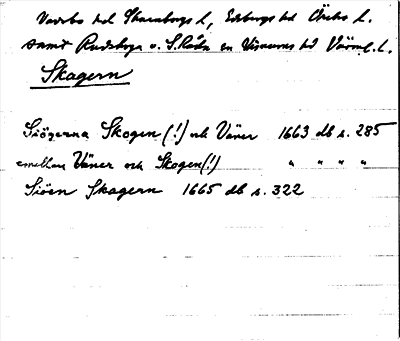 Vadsbo hd Skaraborgs l., Edsbergs hd Örebro l.
samt Rudskoga o. S. Råda sn Visnums hd Värml. l.
Skagern
Siögerna Skogen (!) och Väner 1663 db s. 285
emellan Väner och Skogen (!) " " " "
Siöen Skagern 1665 db s. 322